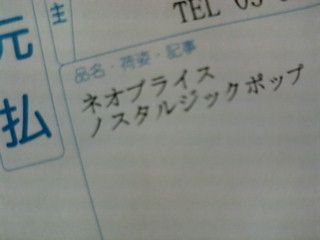 元払
主
TEL 03
品名・荷姿・記事
ネオブライス
ノスタルジックポップ